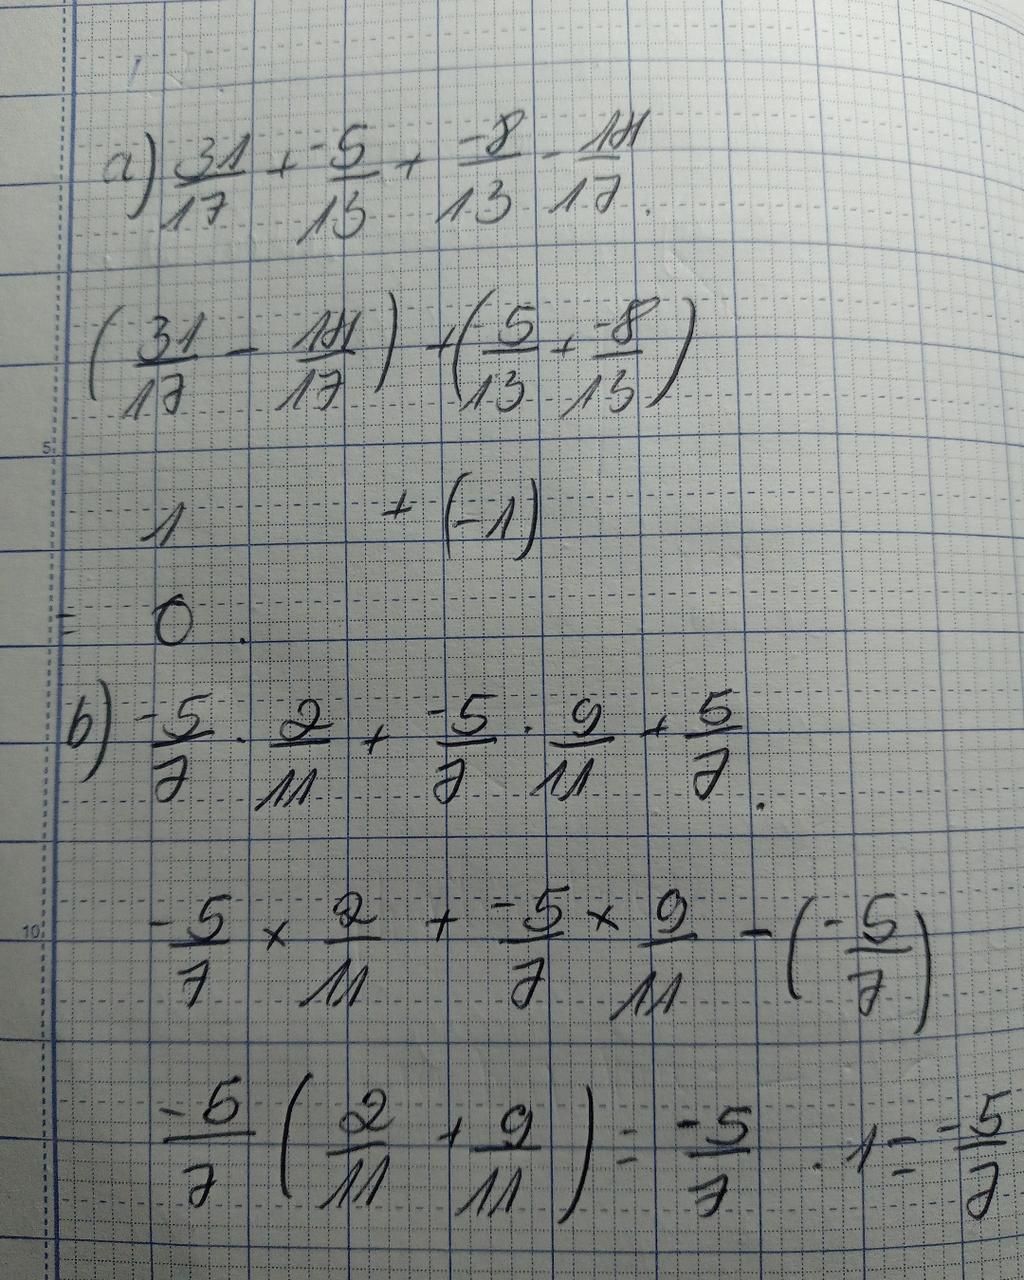 a) 31/17 + -5/13 + -8/13 - 14/17.
(31/17 - 14/17) + (-5/13 + -8/13)
1 + (-1)
= 0.
b) -5/7 . 2/11 + -5/7 . 9/11 + 5/7.
-5/7 × 2/11 + -5/7 × 9/11 - (-5/7)
-5/7 (2/11 + 9/11) = -5/7 . 1 = -5/7
5
10